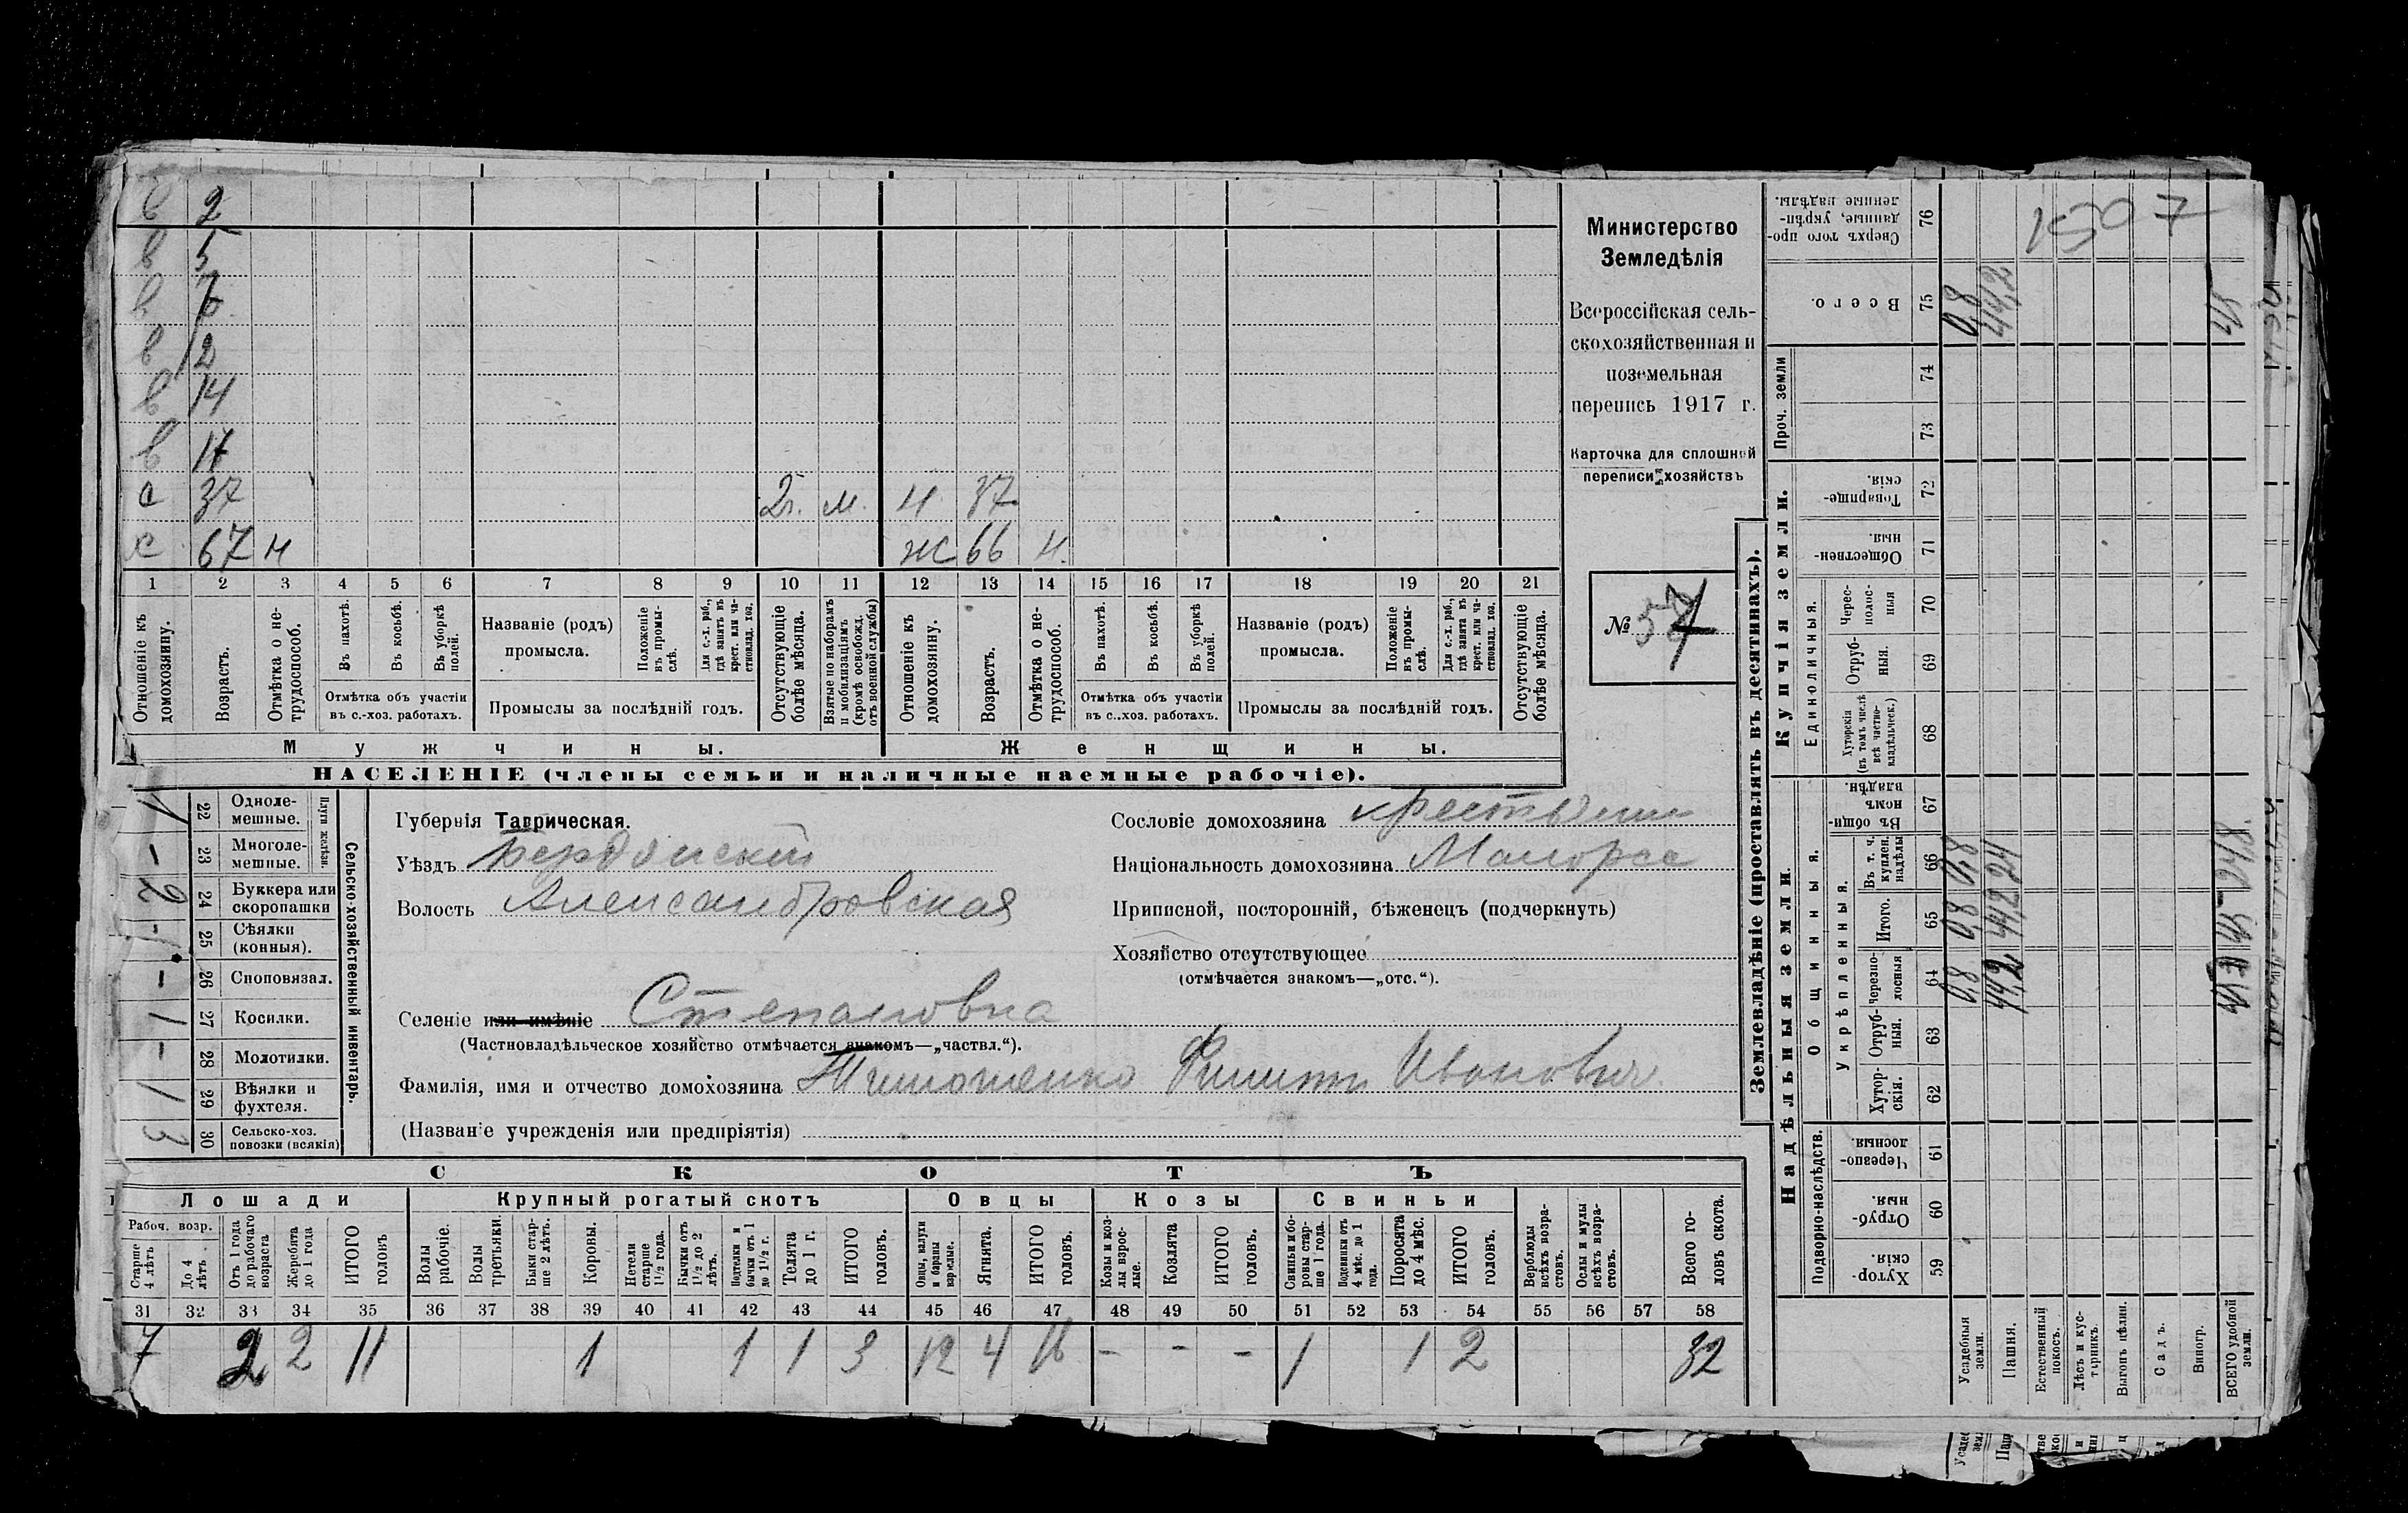 в 2
в 5
в 7
в 12
в 14
в 17
с 37 2г. м. н 37
х 67 н ж 66 н.
1 2 3 4 5 6 7 8 9 10 11 12 13 14 15 16 17 18 19 20 21
Отношеніе къ домохозяину.
Возрастъ.
Отмѣтка о нетрудоспособ.
Въ пахотѣ.
Въ косьбѣ.
Въ уборкѣ полей.
Отмѣтка объ участіи въ с.-хоз. работахъ.
Названіе (родъ) промысла.
Положеніе въ промыслѣ.
Для с.-х. раб., гдѣ занятъ въ крест. или частновлад. хоз.
Промыслы за послѣдній годъ.
Отсутствующіе болѣе мѣсяца.
Взятые по наборамъ и мобилизаціямъ (кромѣ освобожд. отъ военной службы)
Отношеніе къ домохозяину.
Возрастъ.
Отмѣтка о нетрудоспособ.
Въ пахотѣ.
Въ косьбѣ.
Въ уборкѣ полей.
Отмѣтка объ участіи въ с.-хоз. работахъ.
Названіе (родъ) промысла.
Положеніе въ промыслѣ.
Для с.-х. раб., гдѣ занята въ крест. или частновлад. хоз.
Промыслы за послѣдній годъ.
Отсутствующіе болѣе мѣсяца.
Мужчины. Женщины.
НАСЕЛЕНІЕ (члены семьи и наличные наемные рабочіе).
Министерство
Земледѣлія
Всероссійская сель-
скохозяйственная и
поземельная
перепись 1917 г.
Карточка для сплошной
переписи хозяйствъ
№ 57
Сельско-хозяйственный инвентарь.
Плуги желѣзн.
1 22 Одноле-мешные.
- 23 Многоле-мешные.
2 24 Буккера или скоропашки
1 25 Сѣялки (конныя).
- 26 Сноповязал.
1 27 Косилки.
- 28 Молотилки.
1 29 Вѣялки и фухтеля.
3 30 Сельско-хоз. повозки (всякія)
Губернія Таврическая.
Уѣздъ Бердянскій
Волость Александровская
Селеніе или имѣніе Степановка
(Частновладѣльческое хозяйство отмѣчается знакомъ—„частвл.“).
Фамилія, имя и отчество домохозяина Тимошенко Филиппъ Ивановичъ
(Названіе учрежденія или предпріятія)
Сословіе домохозяина крестьянин
Національность домохозяина Малоросс
Приписной, посторонній, бѣженецъ (подчеркнуть)
Хозяйство отсутствующее
(отмѣчается знакомъ—„отс.“).
СКОТЪ
Лошади Крупный рогатый скотъ Овцы Козы Свиньи
Рабоч. возр.
Старше 4 лѣтъ
До 4 лѣтъ
Отъ 1 года до рабочаго возраста
Жеребята до 1 года
ИТОГО головъ
Волы рабочіе.
Волы третьяки.
Быки старше 2 лѣтъ.
Коровы.
Нетели старше 1½ года.
Бычки отъ 1½ до 2 лѣтъ.
Подтелки и бычки отъ 1 до 1½ г.
Телята до 1 г.
ИТОГО головъ.
Овцы, валухи и бараны взрослые.
Ягнята.
ИТОГО головъ.
Козы и козлы взрослые.
Козлята
ИТОГО головъ.
Свиньи и боровы старше 1 года.
Подсвинки отъ 4 мѣс. до 1 года.
Поросята до 4 мѣс.
ИТОГО головъ.
Верблюды всѣхъ возрастовъ.
Ослы и мулы всѣхъ возрастовъ.
Всего головъ скота.
31 32 33 34 35 36 37 38 39 40 41 42 43 44 45 46 47 48 49 50 51 52 53 54 55 56 57 58
7 2 2 11 1 1 1 3 12 4 16 - - - 1 1 2 32
Землевладѣніе (проставлять въ десятинахъ).
Надѣльныя земли. Купчія земли. Проч. земли
Подворно-наслѣдств.
Общинныя.
Укрѣпленныя.
Единоличныя.
Хуторскія 59
Отрубныя. 60
Черезполосныя 61
Хуторскія. 62
Отрубныя. 63
Черезполосныя 64
Итого. 65
Въ т. ч. куплен. надѣлы 66
Въ общинномъ владѣн. 67
Хуторскія (въ томъ числѣ всѣ частновладѣльческ.) 68
Отрубныя. 69
Чресполосныя 70
Общественныя. 71
Товарищескія. 72
73
74
Всего. 75
Сверхъ того проданные, укрѣпленные надѣлы. 76
Усадебныя земли. 0,8 0,8 0,8 0,8
Пашня. 44,2 44,2 24 44,2
Естественный покосъ.
Лѣсъ и кустарникъ.
Выгонъ цѣлин.
Садъ.
Виногр.
ВСЕГО удобной земли. 45 45 24,8 45
1507